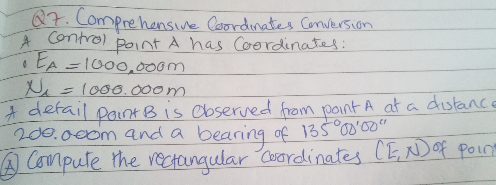 Q7. Comprehensive Coordinates Conversion
A Control point A has Coordinates:
• E_A = 1000.000m
N_A = 1000.000m
A detail point B is Observed from point A at a distance
200.000m and a bearing of 135°00'00"
(A) Compute the rectangular Coordinates (E,N) of poin